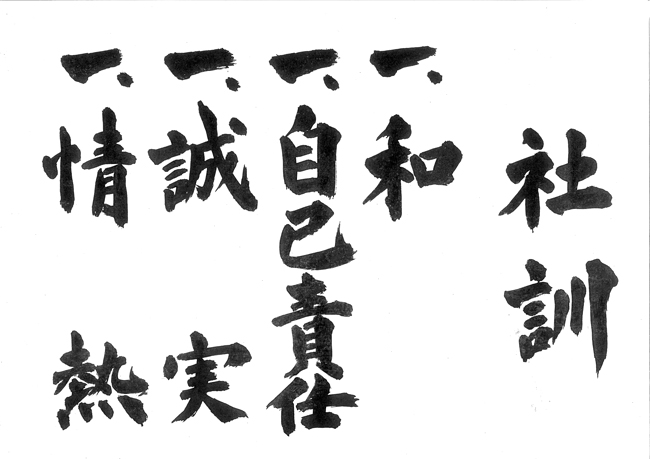 社訓
一、和
一、自己責任
一、誠実
一、情熱